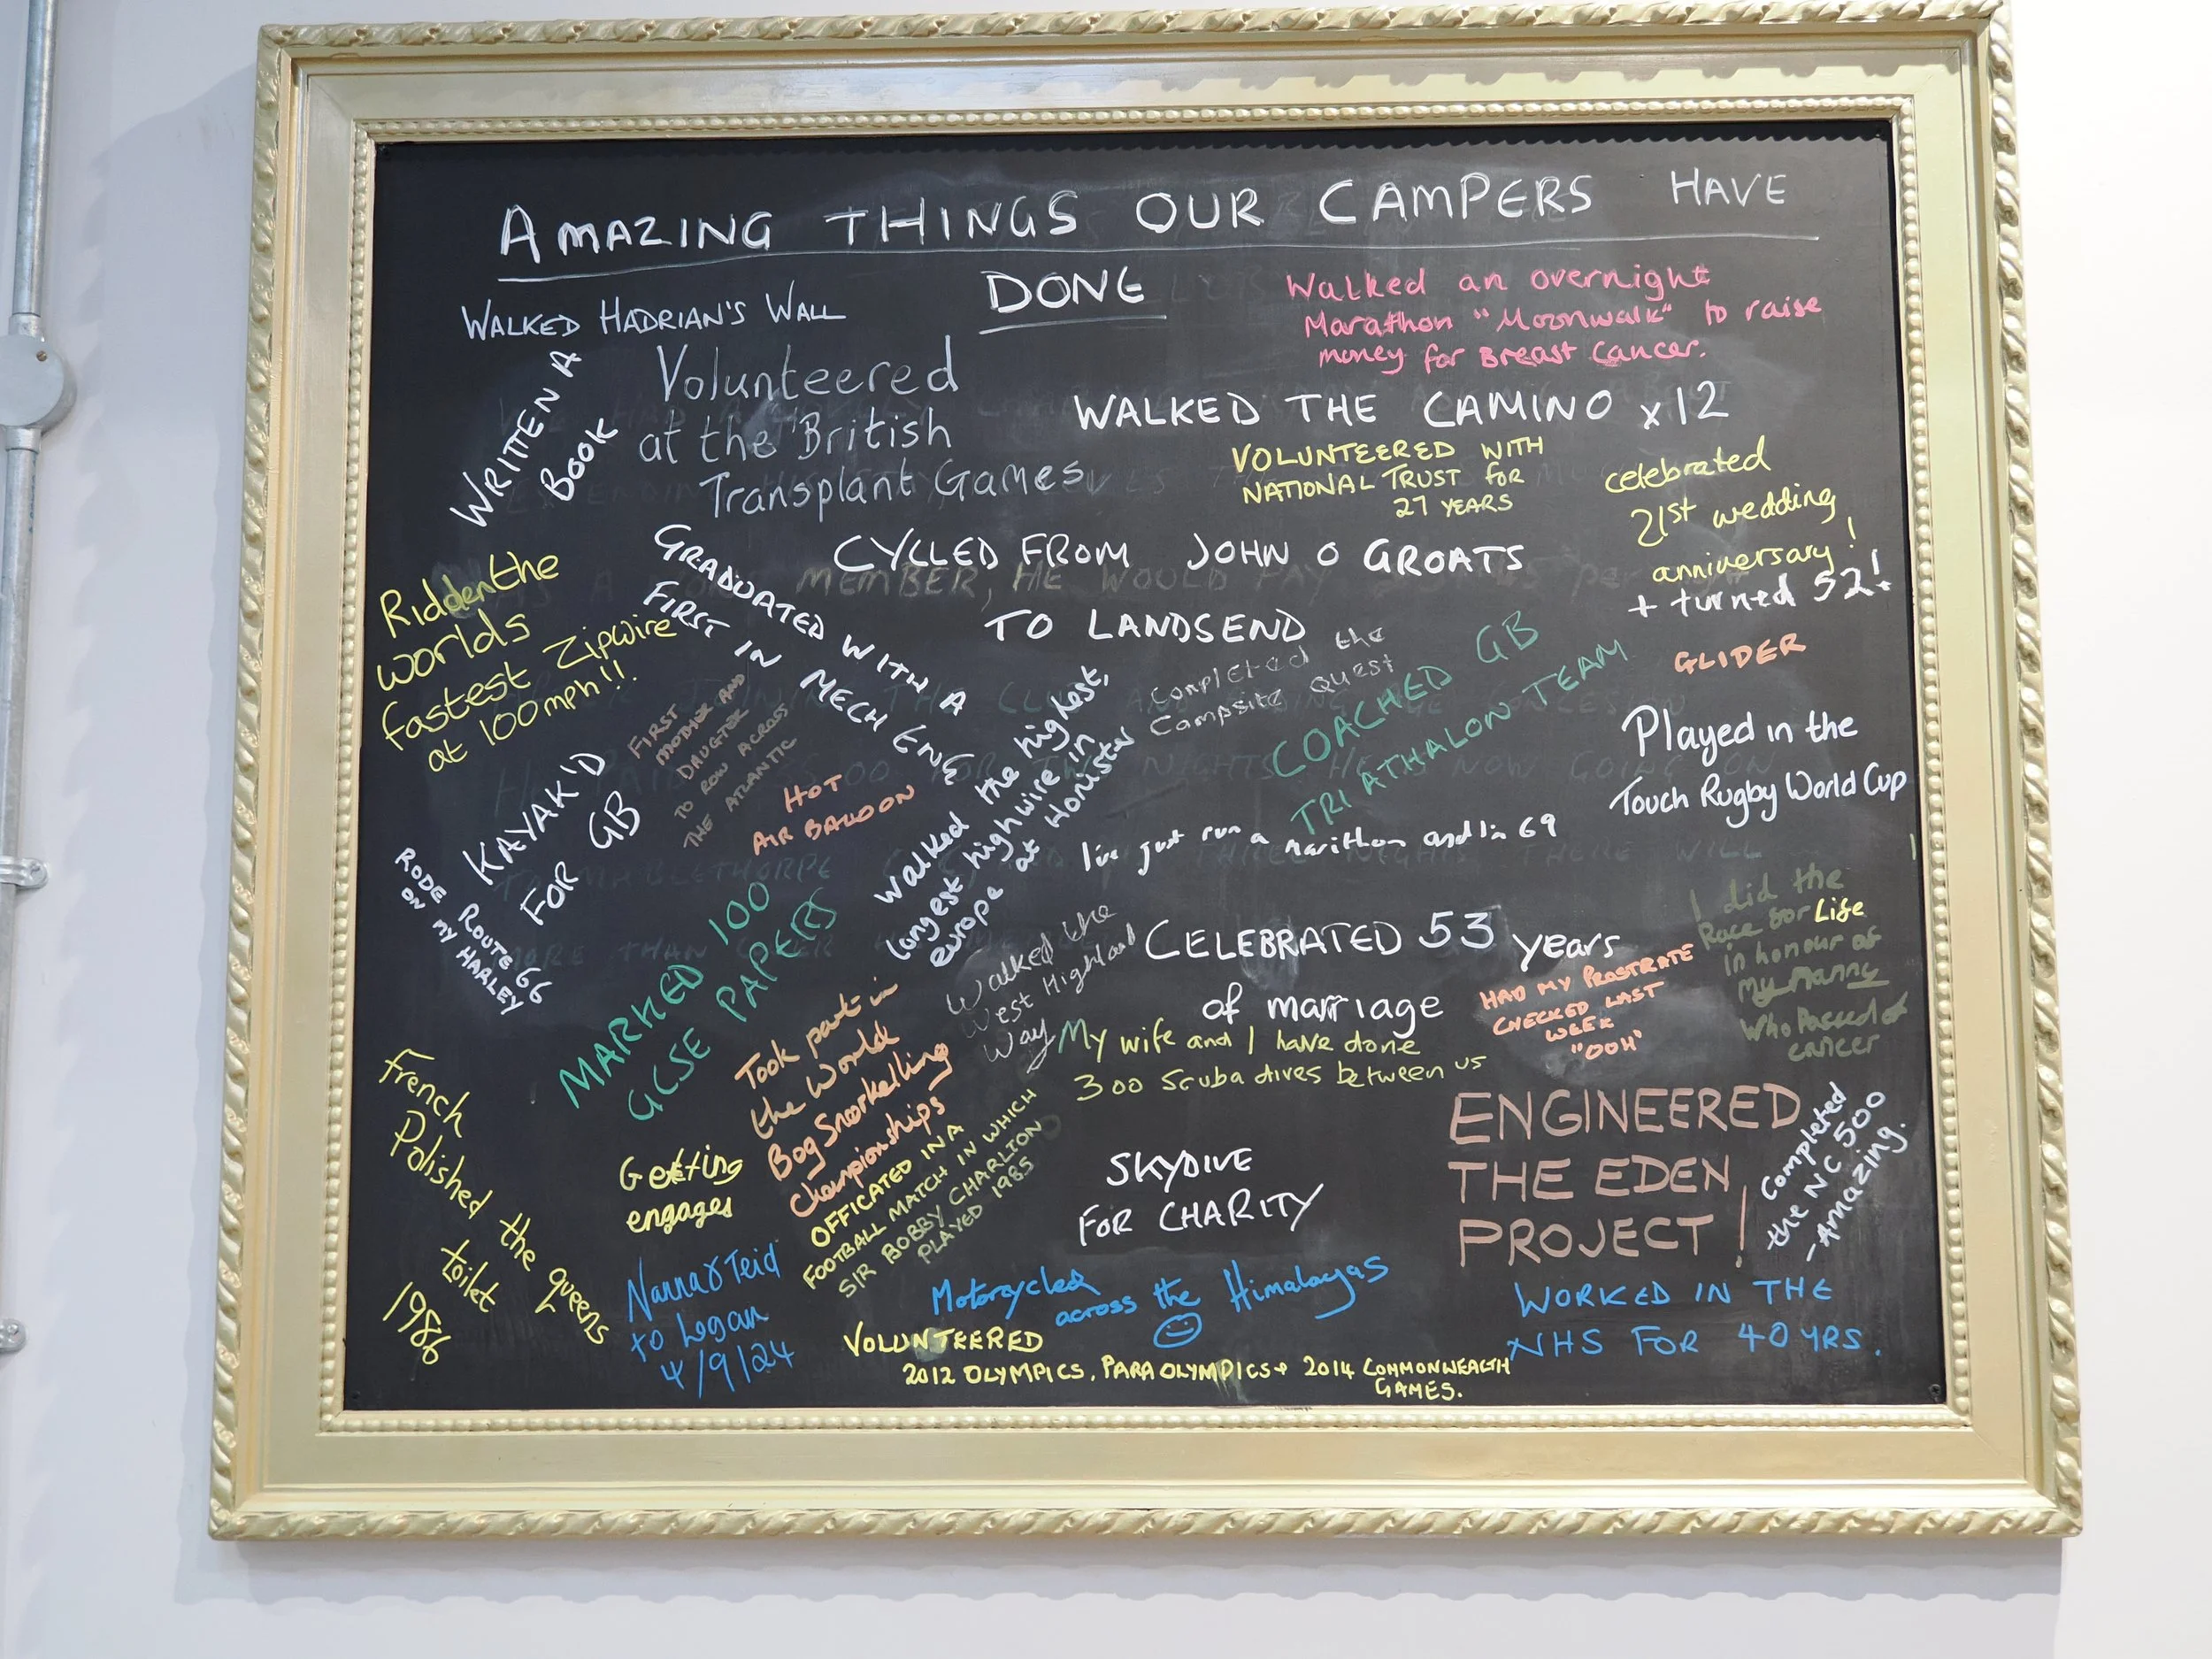 AMAZING THINGS OUR CAMPERS HAVE
DONE
WALKED HADRIAN'S WALL
Walked an overnight
Marathon "Moonwalk" to raise
money for Breast Cancer.
WRITTEN A
BOOK
Volunteered
at the British
Transplant Games
WALKED THE CAMINO x12
VOLUNTEERED WITH
NATIONAL TRUST for
27 YEARS
celebrated
21st wedding
anniversary!
+ turned 52!
CYCLED FROM JOHN O GROATS
TO LANDSEND
GRADUATED WITH A
FIRST IN MECH ENG
Ridden the
worlds
fastest Zipwire
at 100mph!!
FIRST
MOTHER AND
DAUGTER
TO ROW ACROSS
THE ATLANTIC
Completed the
Campsite quest
COACHED GB
TRIATHALON TEAM
GLIDER
Played in the
Touch Rugby World Cup
KAYAK'D
FOR GB
HOT
AIR BALLOON
walked the highest,
longest highwire in
europe at Honister
I've just run a marithon and Im 69
RODE ROUTE 66
ON MY HARLEY
MARKED 100
GCSE PAPERS
Walked the
West Highland
Way
CELEBRATED 53 years
of marriage
HAD MY PROSTRATE
CHECKED LAST
WEEK
"OOH"
I did the
Race for Life
in honour of
my Nanny
Who Passed of
cancer
Took part in
the World
Bog Snorkelling
Championships
My wife and I have done
300 Scuba dives between us
French
Polished the queens
toilet
1986
Getting
engages
OFFICATED IN A
FOOTBALL MATCH IN WHICH
SIR BOBBY CHARLTON
PLAYED 1985
SKYDIVE
FOR CHARITY
ENGINEERED
THE EDEN
PROJECT!
Completed
the NC 500
- Amazing.
Nanna & Teid
to Logan
4/9/24
Motorcycled
across the Himalayas
WORKED IN THE
NHS FOR 40 YRS.
VOLUNTEERED
2012 OLYMPICS, PARAOLYMPICS + 2014 COMMONWEALTH
GAMES.